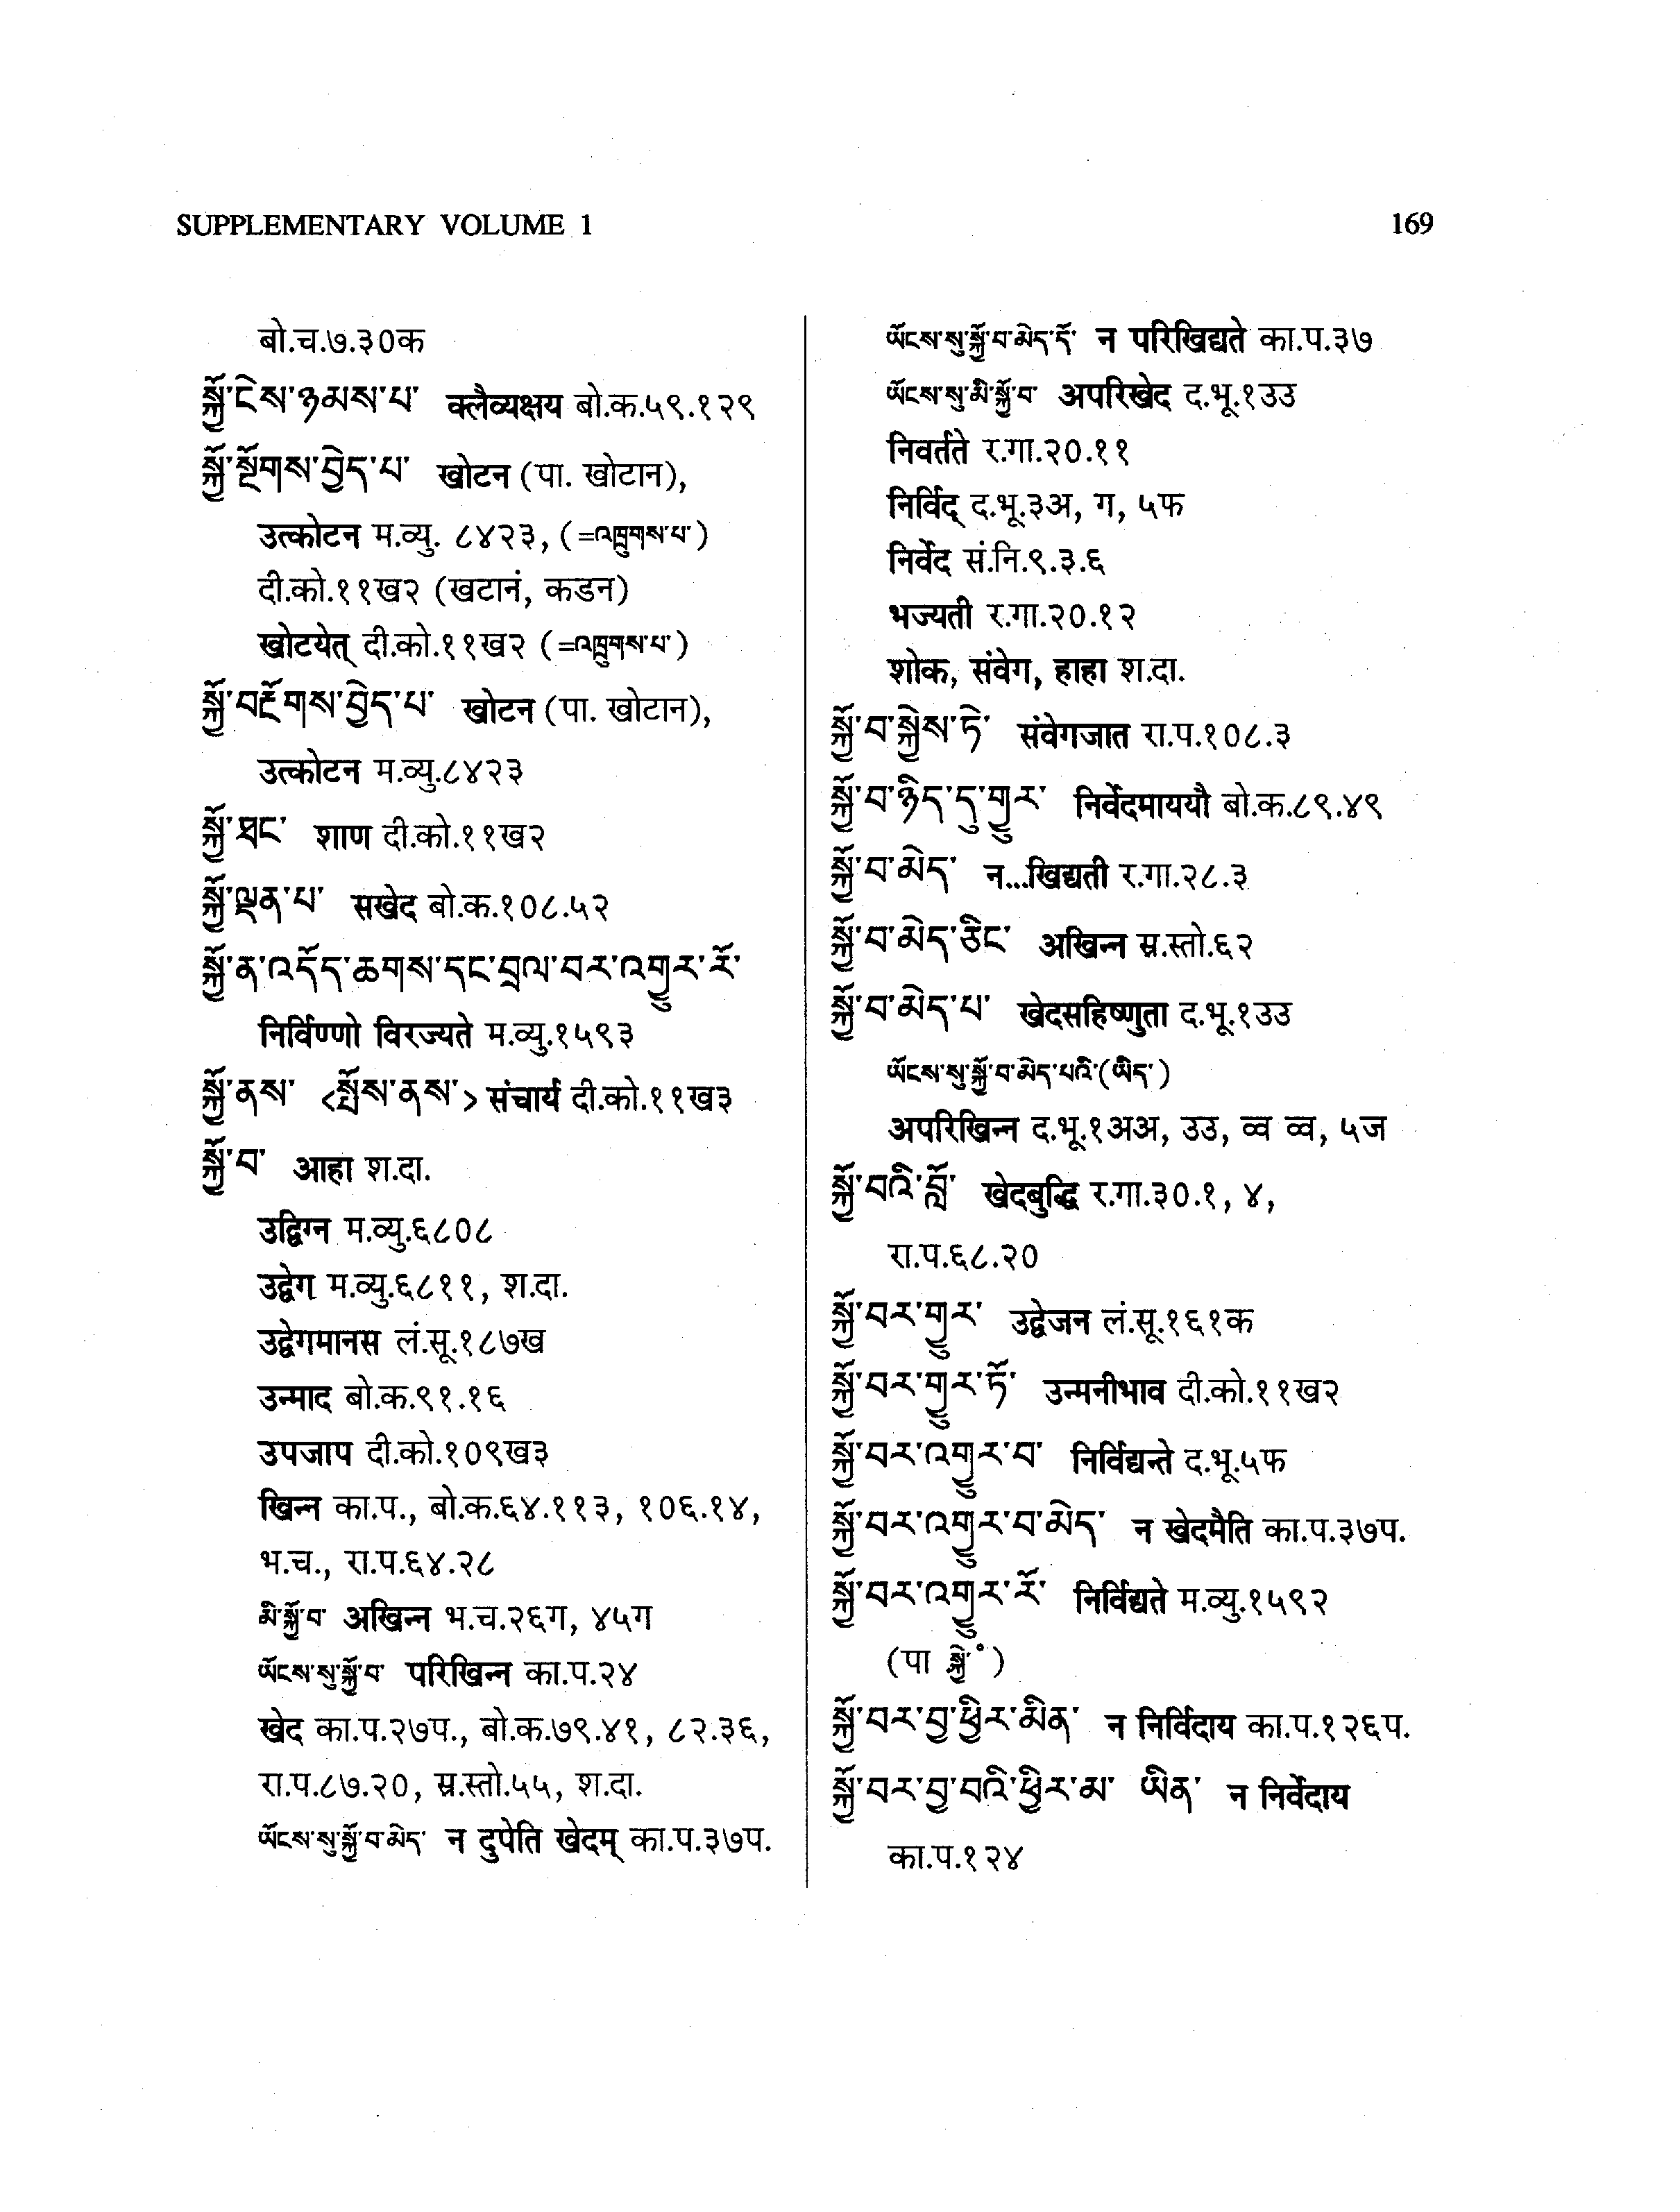 SUPPLEMENTARY VOLUME 1
169
बो.च.७.३०क
སྐྱོ་ངེས་ཉམས་པ་ क्लैव्यक्षय बो.क.५९.१२९
སྐྱོ་སྔོགས་བྱེད་པ་ खोटन (पा. खोटान),
उत्कोटन म.व्यु. ८४२३, (=འཁྲུགས་པ་)
दी.को.११ख२ (खटानं, कडन)
खोटयेत् दी.को.११ख२ (=འཁྲུགས་པ་)
སྐྱོ་བརྔོགས་བྱེད་པ་ खोटन (पा. खोटान),
उत्कोटन म.व्यु.८४२३
སྐྱོ་ཐང་ शाण दी.को.११ख२
སྐྱོ་ལྡན་པ་ सखेद बो.क.१०८.५२
སྐྱོ་ན་འདོད་ཆགས་དང་བྲལ་བར་འགྱུར་རོ་
निर्विण्णो विरज्यते म.व्यु.१५९३
སྐྱོ་ནས་ <སྤོས་ནས་> संचार्य दी.को.११ख३
སྐྱོ་བ་ आहा श.दा.
उद्विग्न म.व्यु.६८०८
उद्वेग म.व्यु.६८११, श.दा.
उद्वेगमानस लं.सू.१८७ख
उन्माद बो.क.९१.१६
उपजाप दी.को.१०९ख३
खिन्न का.प., बो.क.६४.११३, १०६.१४,
भ.च., रा.प.६४.२८
མི་སྐྱོ་བ་ अखिन्न भ.च.२६ग, ४५ग
ཡོངས་སུ་སྐྱོ་བ་ परिखिन्न का.प.२४
खेद का.प.२७प., बो.क.७९.४१, ८२.३६,
रा.प.८७.२०, स्र.स्तो.५५, श.दा.
ཡོངས་སུ་སྐྱོ་བ་མེད་ न दुपेति खेदम् का.प.३७प.
ཡོངས་སུ་སྐྱོ་བ་མེད་དོ་ न परिखिद्यते का.प.३७
ཡོངས་སུ་མི་སྐྱོ་བ་ अपरिखेद द.भू.१उउ
निवर्तते र.गा.२०.११
निर्विद् द.भू.३अ, ग, ५फ
निर्वेद सं.नि.९.३.६
भज्यती र.गा.२०.१२
शोक, संवेग, हाहा श.दा.
སྐྱོ་བ་སྐྱེས་ཏེ་ संवेगजात रा.प.१०८.३
སྐྱོ་བ་ཉིད་དུ་གྱུར་ निर्वेदमाययौ बो.क.८९.४९
སྐྱོ་བ་མེད་ न...खिद्यती र.गा.२८.३
སྐྱོ་བ་མེད་ཅིང་ अखिन्न स्र.स्तो.६२
སྐྱོ་བ་མེད་པ་ खेदसहिष्णुता द.भू.१उउ
ཡོངས་སུ་སྐྱོ་བ་མེད་པའི་(ཡིད་)
अपरिखिन्न द.भू.१अअ, उउ, व्व व्व, ५ज
སྐྱོ་བའི་བློ་ खेदबुद्धि र.गा.३०.१, ४,
रा.प.६८.२०
སྐྱོ་བར་གྱུར་ उद्वेजन लं.सू.१६१क
སྐྱོ་བར་གྱུར་ཏོ་ उन्मनीभाव दी.को.११ख२
སྐྱོ་བར་འགྱུར་བ་ निर्विद्यन्ते द.भू.५फ
སྐྱོ་བར་འགྱུར་བ་མེད་ न खेदमैति का.प.३७प.
སྐྱོ་བར་འགྱུར་རོ་ निर्विद्यते म.व्यु.१५९२
(पा སྐྱེ་°)
སྐྱོ་བར་བྱ་ཕྱིར་མིན་ न निर्विदाय का.प.१२६प.
སྐྱོ་བར་བྱ་བའི་ཕྱིར་མ་ ཡིན་ न निर्वेदाय
का.प.१२४